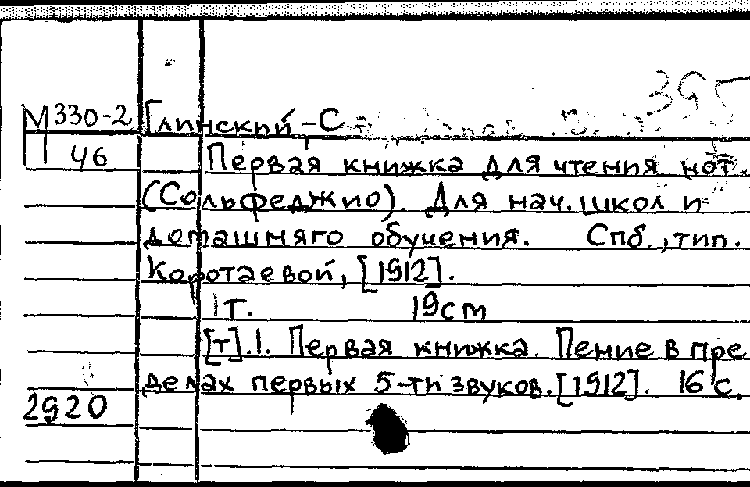 395
М 330-2 Глинский, С
46 Первая книжка для чтения нот.
(Сольфеджио). Для нач. школ и
домашняго обучения. Спб., тип.
Коротаевой, [1912].
1 т. 19 см
[т]. 1. Первая книжка. Пение в пре
делах первых 5-ти звуков. [1912]. 16 с.
2920